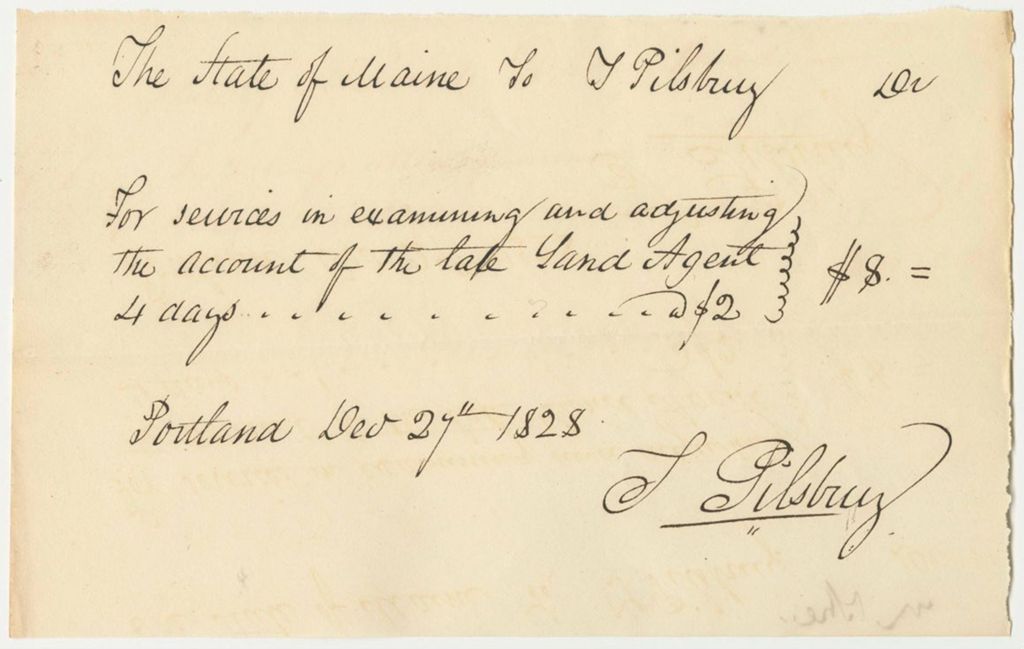 The State of Maine To T Pilsbury Dr
For services in examining and adjusting
the account of the late Land Agent
4 days . . . . . . . . . . . @ $2 $8. =
Portland Dec 27th 1828
T Pilsbury